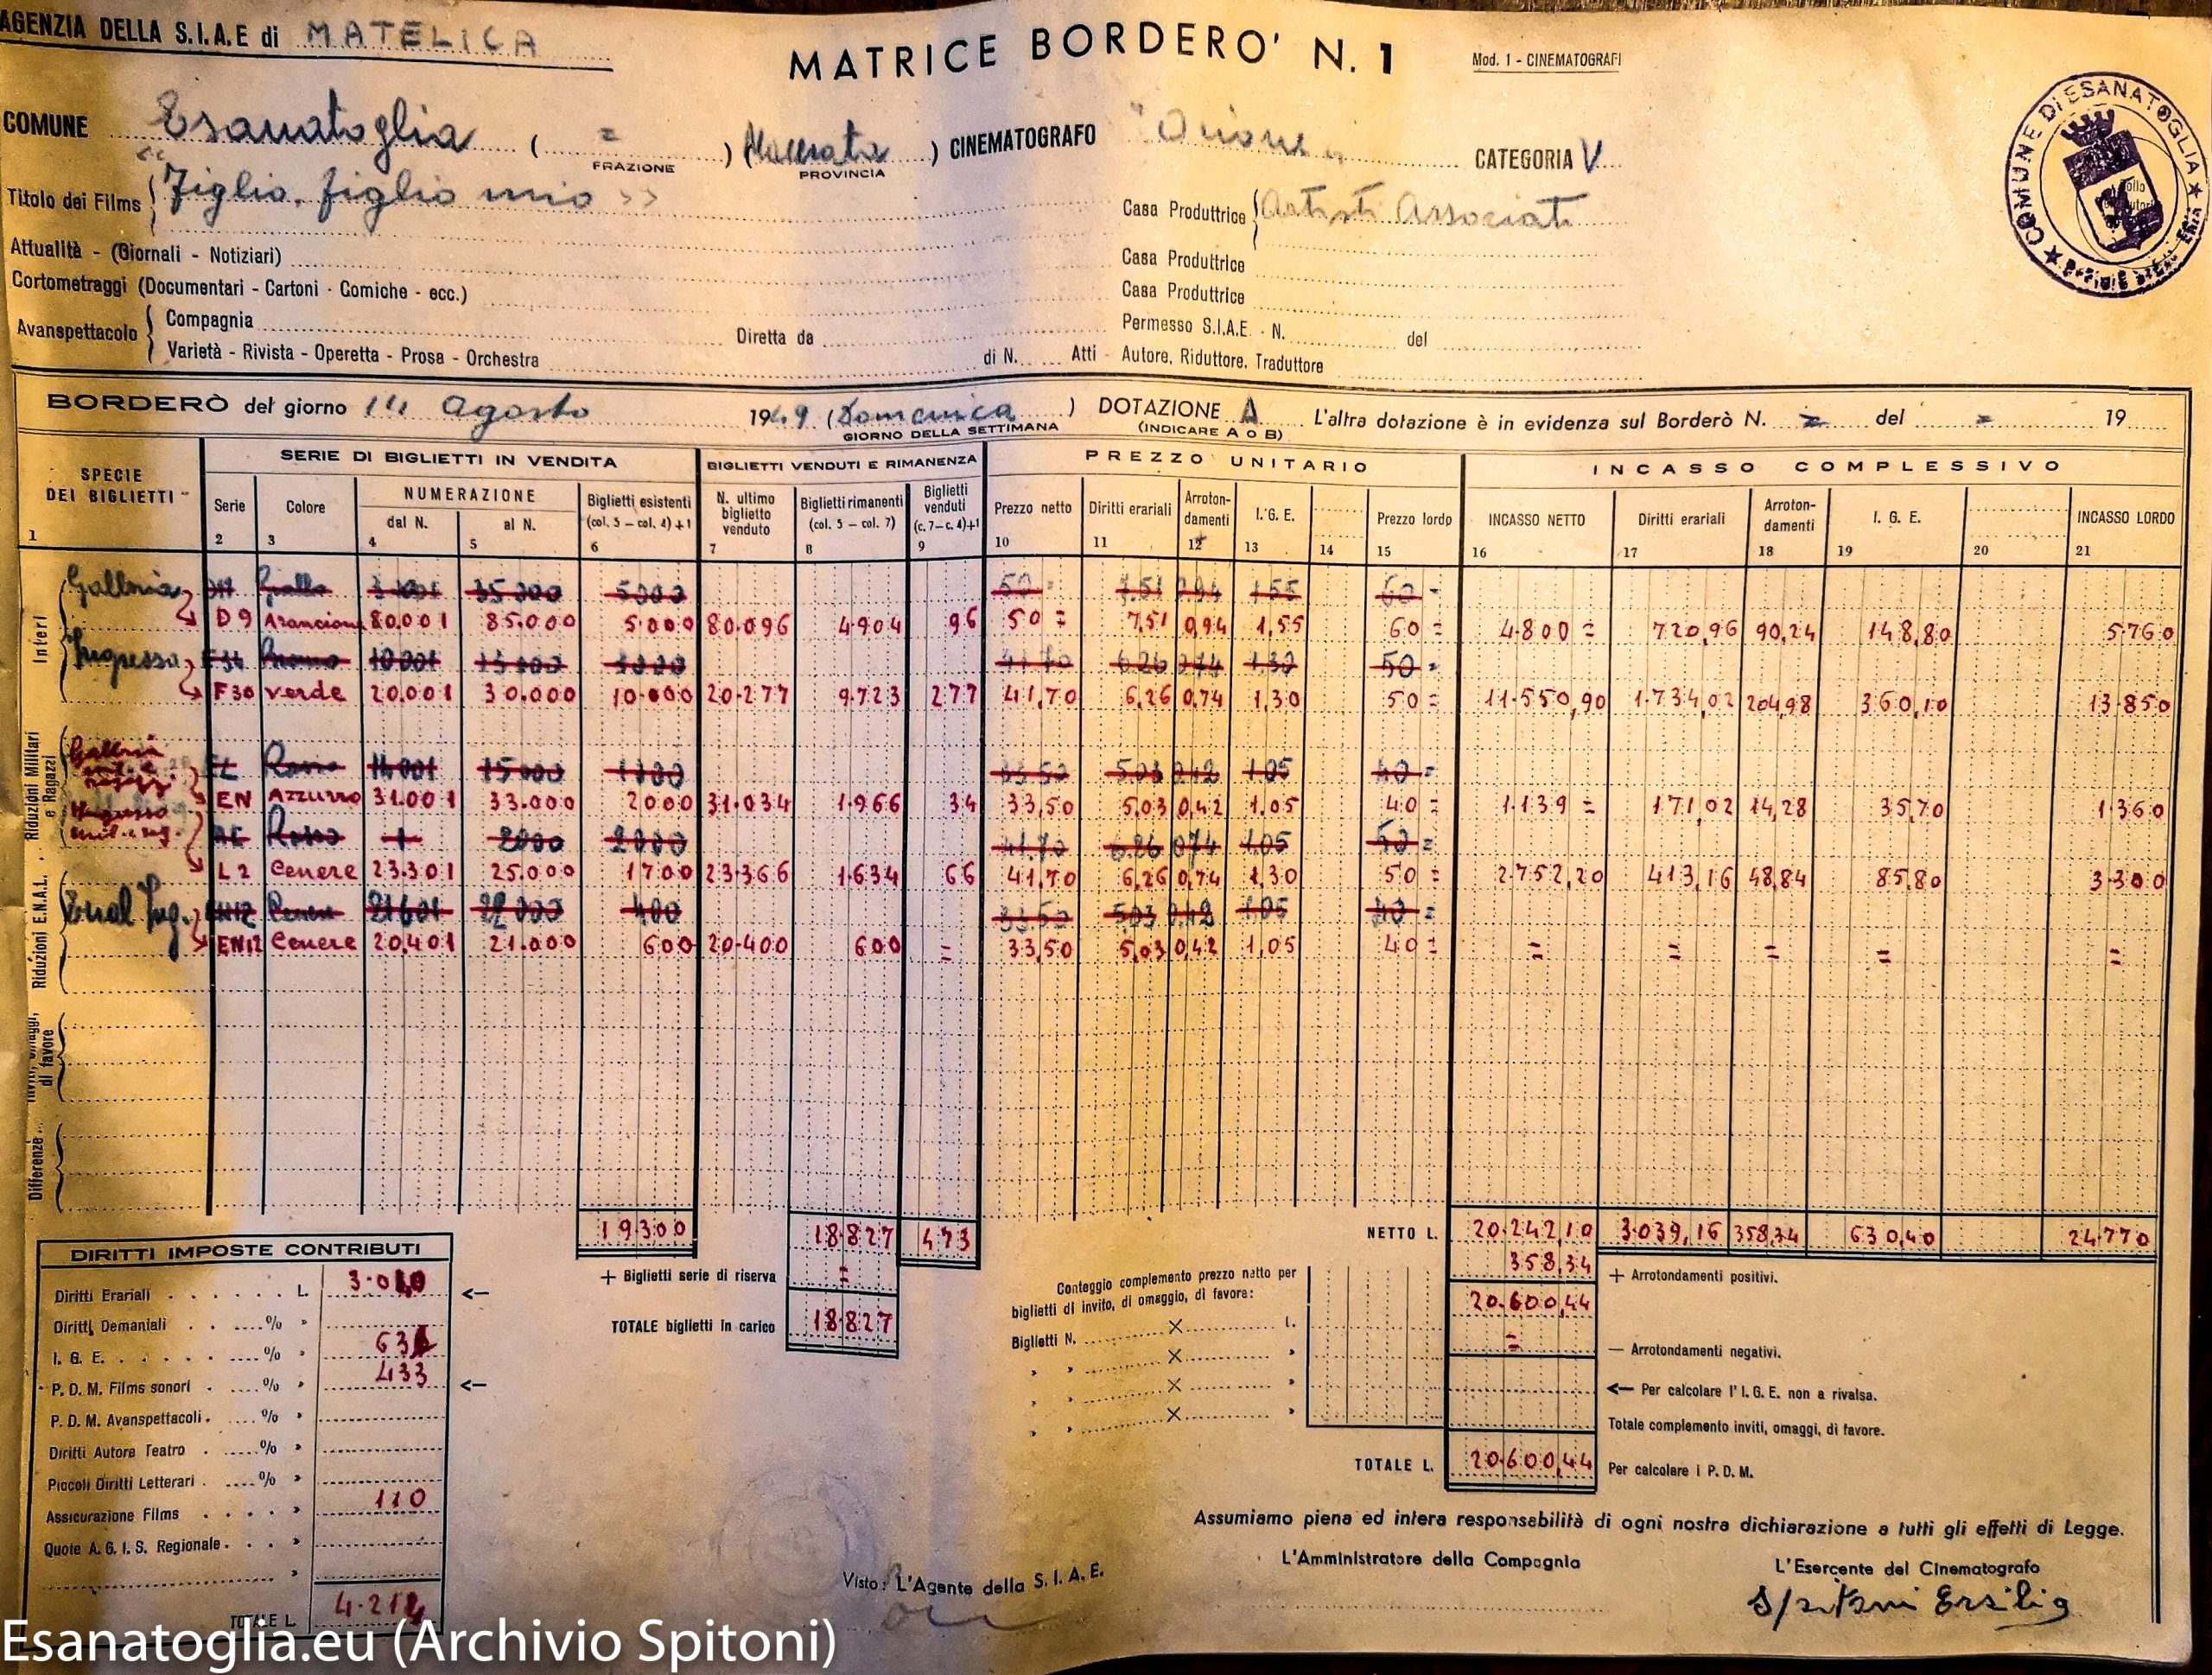 AGENZIA DELLA S.I.A.E di MATELICA
MATRICE BORDERO' N. 1
Mod. 1 - CINEMATOGRAFI
COMUNE Esanatoglia ( = ) (Macerata) CINEMATOGRAFO "Orione" CATEGORIA V
FRAZIONE PROVINCIA
Titolo dei Films "Figlio, figlio mio >>
Casa Produttrice Artisti Associati
Attualità - (Giornali - Notiziari) Casa Produttrice
Cortometraggi (Documentari - Cartoni - Comiche - ecc.) Casa Produttrice
Avanspettacolo Compagnia Diretta da Permesso S.I.A.E. - N. del
Varietà - Rivista - Operetta - Prosa - Orchestra di N. Atti - Autore, Riduttore, Traduttore
COMUNE DI ESANATOGLIA
BORDERÒ del giorno 14 Agosto 1949 (Domenica) DOTAZIONE A L'altra dotazione è in evidenza sul Borderò N. = del = 19
GIORNO DELLA SETTIMANA (INDICARE A O B)
SPECIE DEI BIGLIETTI SERIE DI BIGLIETTI IN VENDITA BIGLIETTI VENDUTI E RIMANENZA PREZZO UNITARIO INCASSO COMPLESSIVO
Serie Colore NUMERAZIONE dal N. al N. Biglietti esistenti (col. 5 - col. 4) +1 N. ultimo biglietto venduto Biglietti rimanenti (col. 5 - col. 7) Biglietti venduti (c. 7 - c. 4)+1 Prezzo netto Diritti erariali Arroton-damenti I.G.E. Prezzo lordo INCASSO NETTO Diritti erariali Arroton-damenti I. G. E. INCASSO LORDO
1 2 3 4 5 6 7 8 9 10 11 12 13 14 15 16 17 18 19 20 21
Interi
Galleria 35000 5000 50= 7.51 0.94 1.55 60=
D9 Arancione 80.001 85.000 5.000 80.096 4.904 96 50= 7,51 0,94 1,55 60= 4.800= 720,96 90,24 148,80 5.760
Ingresso F34 10001 15000 5000 41.70 6.26 0.74 1.30 50=
F30 Verde 20.001 30.000 10.000 20.277 9.723 277 41,70 6,26 0,74 1,30 50= 11.550,90 1.734,02 204,98 360,10 13.850
Riduzioni Militari e Ragazzi
Galleria Rosso 14001 15000 1000 33.50 5.03 0.42 1.05 40=
EN Azzurro 31.001 33.000 2000 31.034 1.966 34 33,50 5,03 0,42 1,05 40= 1.139= 171,02 14,28 35,70 1.360
Ingresso mil. e rag. AE Rosso 1 2000 2000 41.70 6.26 0.74 1.05 50=
L2 Cenere 23.301 25.000 1.700 23.366 1.634 66 41,70 6,26 0,74 1,30 50= 2.752,20 413,16 48,84 85,80 3.300
Riduzioni E.N.A.L.
Enal Ing. EN12 Cenere 21601 22000 400 33.50 5.03 0.42 1.05 40=
EN12 Cenere 20.401 21.000 600 20.400 600 = 33,50 5,03 0,42 1,05 40= = = = = =
di favore
Differenze
19300 18.827 473 NETTO L. 20.242,10 3.039,16 358,34 630,40 24.770
+ Biglietti serie di riserva = 358,34 + Arrotondamenti positivi.
20.600,44
TOTALE biglietti in carico 18.827
= — Arrotondamenti negativi.
← Per calcolare l'I.G.E. non a rivalsa.
Totale complemento inviti, omaggi, di favore.
TOTALE L. 20.600,44 Per calcolare i P.D.M.
Conteggio complemento prezzo netto per
biglietti di invito, di omaggio, di favore:
Biglietti N. × L.
» » × »
» » × »
» » × »
DIRITTI IMPOSTE CONTRIBUTI
Diritti Erariali L. 3.040 ←
Diritti Demaniali % »
I. G. E. % » 631
P. D. M. Films sonori % » 433 ←
P. D. M. Avanspettacoli % »
Diritti Autore Teatro % »
Piccoli Diritti Letterari % »
Assicurazione Films » 110
Quote A. G. I. S. Regionale »
TOTALE L. 4.214
Visto: L'Agente della S. I. A. E.
Assumiamo piena ed intera responsabilità di ogni nostra dichiarazione a tutti gli effetti di Legge.
L'Amministratore della Compagnia
L'Esercente del Cinematografo
Spitoni Ersilia
Esanatoglia.eu (Archivio Spitoni)